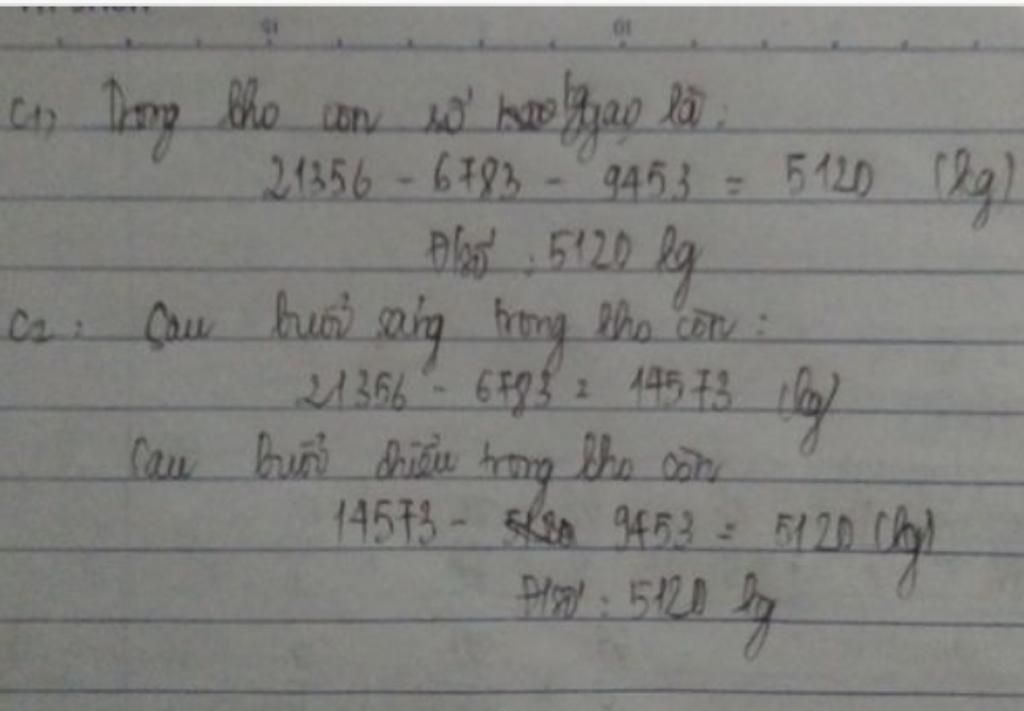 C1, Trong kho con số gạo là:
21356 - 6783 - 9453 = 5120 (kg)
Đ/số: 5120 kg
C2: Sau buổi sáng trong kho còn:
21356 - 6783 = 14573 (kg)
Sau buổi chiều trong kho còn
14573 - 9453 = 5120 (kg)
Đ/số: 5120 kg